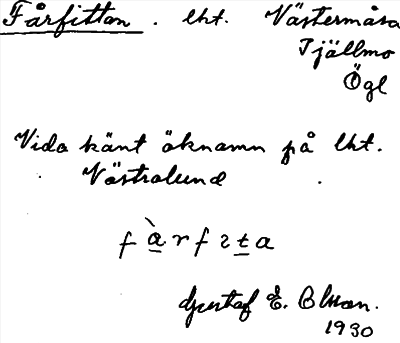 Fårfittan . lht. Västermåsa
Tjällmo
Ögl
Vida känt öknamn på lht.
Västralund .
f à r f ɩ t a
Gustaf E. Blman.
1930